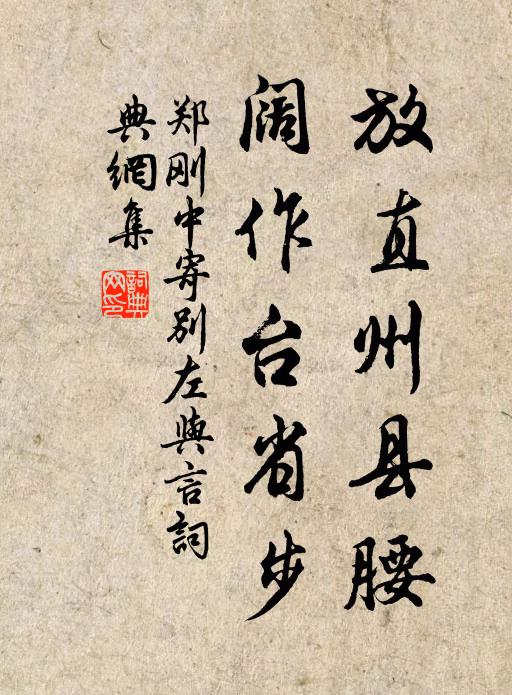 放直州县腰
阔作台省步
郑刚中寄别左與言詞
典網集
詞典网印